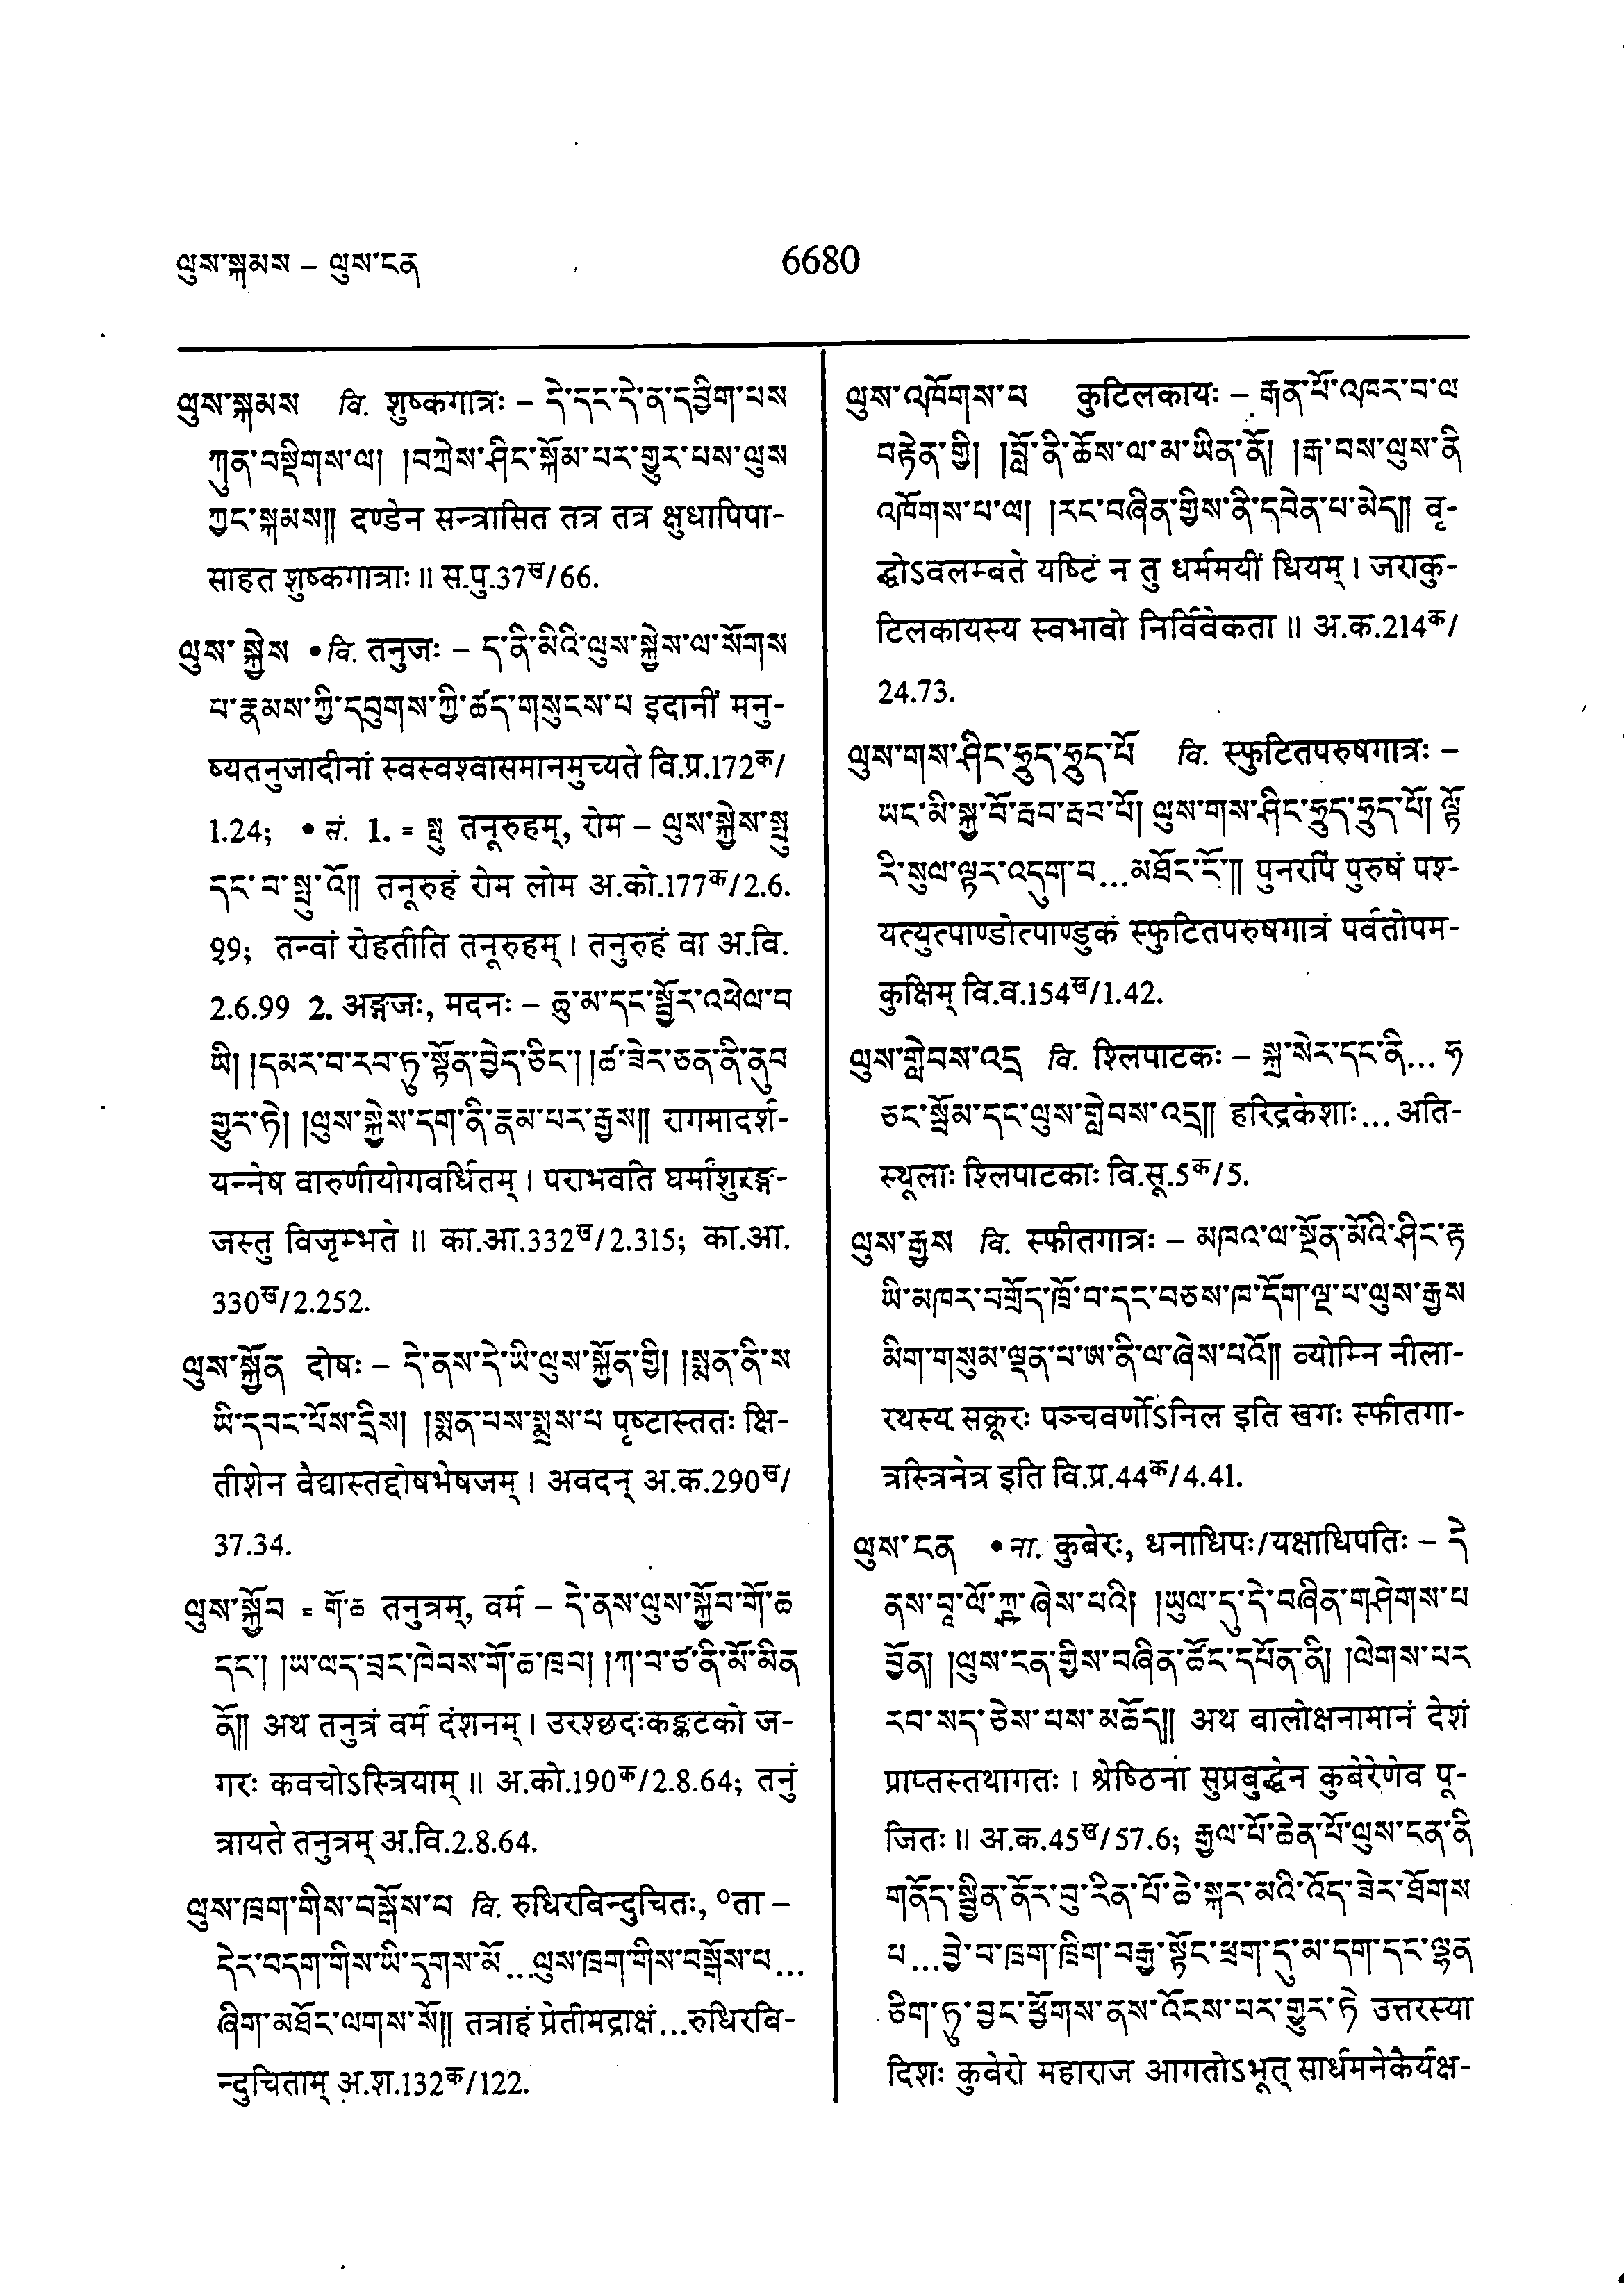 ལུས་སྐམས – ལུས་ངན
6680
ལུས་སྐམས वि. शुष्कगात्रः – དེ་དང་དེ་ན་དབྱིག་པས
ཀུན་བསྡིགས་ལ། །བཀྲེས་ཤིང་སྐོམ་པར་གྱུར་པས་ལུས
ཀྱང་སྐམས།། दण्डेन सन्त्रासित तत्र तत्र क्षुधापिपा-
साहत शुष्कगात्राः ॥ स.पु.37ख/66.
ལུས་སྐྱེས • वि. तनुजः – ད་ནི་མིའི་ལུས་སྐྱེས་ལ་སོགས
པ་རྣམས་ཀྱི་དབུགས་ཀྱི་ཚད་གསུངས་པ इदानीं मनु-
ष्यतनुजादीनां स्वस्वश्वासमानमुच्यते वि.प्र.172क/
1.24; • सं. 1. = སྤུ तनूरुहम्, रोम – ལུས་སྐྱེས་སྤུ
དང་བ་སྤུ་འོ།། तनूरुहं रोम लोम अ.को.177क/2.6.
99; तन्वां रोहतीति तनूरुहम् । तनुरुहं वा अ.वि.
2.6.99 2. अङ्गजः, मदनः – ཆུ་མ་དང་སྦྱོར་འཕེལ་བ
ཡི། །དམར་བ་རབ་ཏུ་སྟོན་བྱེད་ཅིང་། །ཚ་ཟེར་ཅན་ནི་ནུབ
གྱུར་ཏེ། །ལུས་སྐྱེས་དག་ནི་རྣམ་པར་རྒྱས།། रागमादर्श-
यन्नेष वारुणीयोगवर्धितम् । पराभवति घर्मांशुरङ्ग-
जस्तु विजृम्भते ॥ का.आ.332ख/2.315; का.आ.
330ख/2.252.
ལུས་སྐྱོན दोषः – དེ་ནས་དེ་ཡི་ལུས་སྐྱོན་གྱི། །སྨན་ནི་ས
ཡི་དབང་པོས་དྲིས། །སྨན་པས་སྨྲས་པ पृष्टास्ततः क्षि-
तीशेन वैद्यास्तद्दोषभेषजम् । अवदन् अ.क.290ख/
37.34.
ལུས་སྐྱོབ = གོ་ཆ तनुत्रम्, वर्म – དེ་ནས་ལུས་སྐྱོབ་གོ་ཆ
དང་། །ཡ་ལད་བྲང་ཁེབས་གོ་ཆ་ཁྲབ། །ཀ་བ་ཙ་ནི་མོ་མིན
ནོ།། अथ तनुत्रं वर्म दंशनम् । उरश्छदःकङ्कटको ज-
गरः कवचोऽस्त्रियाम् ॥ अ.को.190क/2.8.64; तनुं
त्रायते तनुत्रम् अ.वि.2.8.64.
ལུས་ཁྲག་གིས་བསྒོས་པ वि. रुधिरबिन्दुचितः, °ता –
དེར་བདག་གིས་ཡི་དྭགས་མོ...ལུས་ཁྲག་གིས་བསྒོས་པ...
ཞིག་མཐོང་ལགས་སོ།། तत्राहं प्रेतीमद्राक्षं...रुधिरबि-
न्दुचिताम् अ.श.132क/122.
ལུས་འཁོགས་པ कुटिलकायः – རྒན་པོ་འཁར་བ་ལ
བརྟེན་གྱི། །བློ་ནི་ཆོས་ལ་མ་ཡིན་ནོ། །རྒ་བས་ལུས་ནི
འཁོགས་པ་ལ། །རང་བཞིན་གྱིས་ནི་དབེན་པ་མེད།། वृ-
द्धोऽवलम्बते यष्टिं न तु धर्ममयीं धियम् । जराकु-
टिलकायस्य स्वभावो निर्विवेकता ॥ अ.क.214क/
24.73.
ལུས་གས་ཤིང་ཧྲུད་ཧྲུད་པོ वि. स्फुटितपरुषगात्रः –
ཡང་མི་སྐྱ་བོ་རབ་རབ་པོ། ལུས་གས་ཤིང་ཧྲུད་ཧྲུད་པོ། ལྟོ
རི་སུལ་ལྟར་འདུག་པ...མཐོང་ངོ་།། पुनरपि पुरुषं पश्-
यत्युत्पाण्डोत्पाण्डुकं स्फुटितपरुषगात्रं पर्वतोपम-
कुक्षिम् वि.व.154ख/1.42.
ལུས་གླེབས་འདྲ वि. श्लिपाटकः – སྐྲ་སེར་དང་ནི...ཧ
ཅང་སྦོམ་དང་ལུས་གླེབས་འདྲ།། हरिद्रकेशाः...अति-
स्थूलाः श्लिपाटकाः वि.सू.5क/5.
ལུས་རྒྱས वि. स्फीतगात्रः – མཁའ་ལ་སྔོན་མོའི་ཤིང་རྟ
ཡི་མཁར་བགྲོད་ཁྲོ་བ་དང་བཅས་ཁ་དོག་ལྔ་པ་ལུས་རྒྱས
མིག་གསུམ་ལྡན་པ་ཨ་ནི་ལ་ཞེས་པའོ།། व्योम्नि नीला-
रथस्य सक्रूरः पञ्चवर्णोऽनिल इति खगः स्फीतगा-
त्रस्त्रिनेत्र इति वि.प्र.44क/4.41.
ལུས་ངན • ना. कुबेरः, धनाधिपः/यक्षाधिपतिः – དེ
ནས་བཱ་ལོ་ཀྵ་ཞེས་པའི། །ཡུལ་དུ་དེ་བཞིན་གཤེགས་པ
བྱོན། །ལུས་ངན་གྱིས་བཞིན་ཚོང་དཔོན་ནི། །ལེགས་པར
རབ་སད་ཅེས་པས་མཆོད།། अथ बालोक्षनामानं देशं
प्राप्तस्तथागतः । श्रेष्ठिना सुप्रबुद्धेन कुबेरेणेव पू-
जितः ॥ अ.क.45ख/57.6; རྒྱལ་པོ་ཆེན་པོ་ལུས་ངན་ནི
གནོད་སྦྱིན་ནོར་བུ་རིན་པོ་ཆེ་སྐར་མའི་འོད་ཟེར་ཐོགས
པ...བྱེ་བ་ཁྲག་ཁྲིག་བརྒྱ་སྟོང་ཕྲག་དུ་མ་དག་དང་ལྷན
ཅིག་ཏུ་བྱང་ཕྱོགས་ནས་འོངས་པར་གྱུར་ཏེ उत्तरस्या
दिशः कुबेरो महाराज आगतोऽभूत् सार्धमनेकैर्यक्ष-